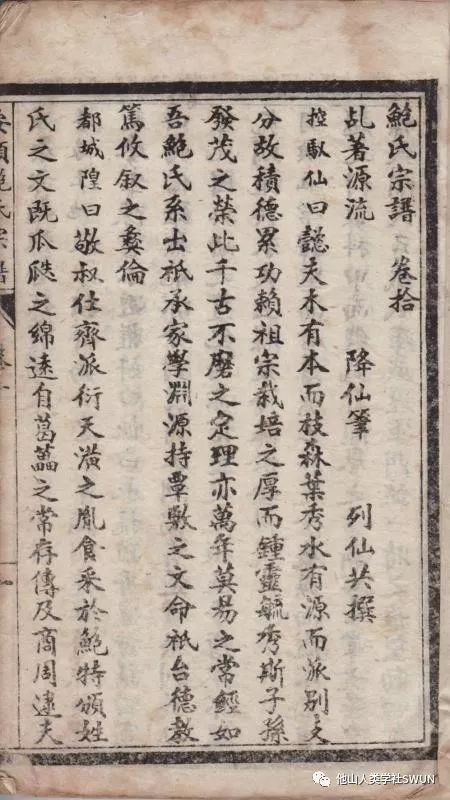 鮑氏宗譜 卷拾
乩著源流 降仙筆 列仙共撰
控馭仙曰懿夫木有本而枝森葉秀水有源而派別支
分故積德累功賴祖宗栽培之厚而鍾靈毓秀斯子孫
發茂之榮此千古不磨之定理亦萬年莫易之常經如
吾鮑氏系出祇承家學淵源持覃敷之文命祇台德教
篤攸叙之彝倫
都城隍曰敬叔仕齊派衍天潢之胤食采於鮑特頒姓
氏之文既瓜瓞之綿遠自葛藟之常存傳及商周逮夫
鮑氏宗譜
他山人类学社SWUN